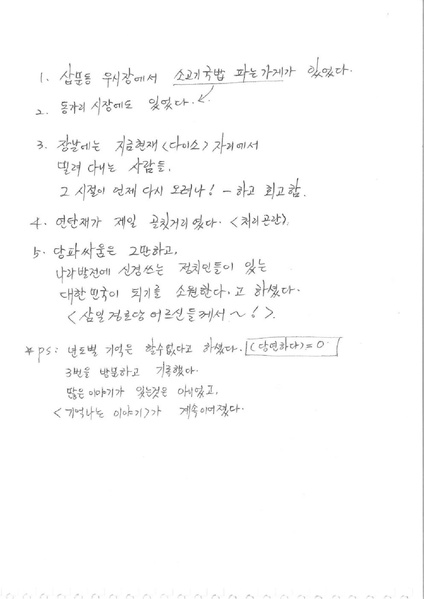 1. 삼문동 우시장에서 소고기국밥 파는가게가 있었다.
2. 동가리 시장에도 있었다.
3. 장날에는 지금현재 <다이소> 자리에서
밀려 다니는 사람들.
그 시절이 언제 다시 오려나! - 하고 회고함.
4. 연탄재가 제일 골칫거리였다. <처리곤란>.
5. 당파싸움은 그만하고,
나라발전에 신경쓰는 정치인들이 있는
대한민국이 되기를 소원한다. 고 하셨다.
<삼일경로당 어르신들께서 ~!>.
* PS: 년도별 기억은 할수없다고 하셨다. (당연하다)=0
3번을 방문하고 기록했다.
많은이야기가 있는것은 아니었고,
<기억나는 이야기>가 계속이어졌다.